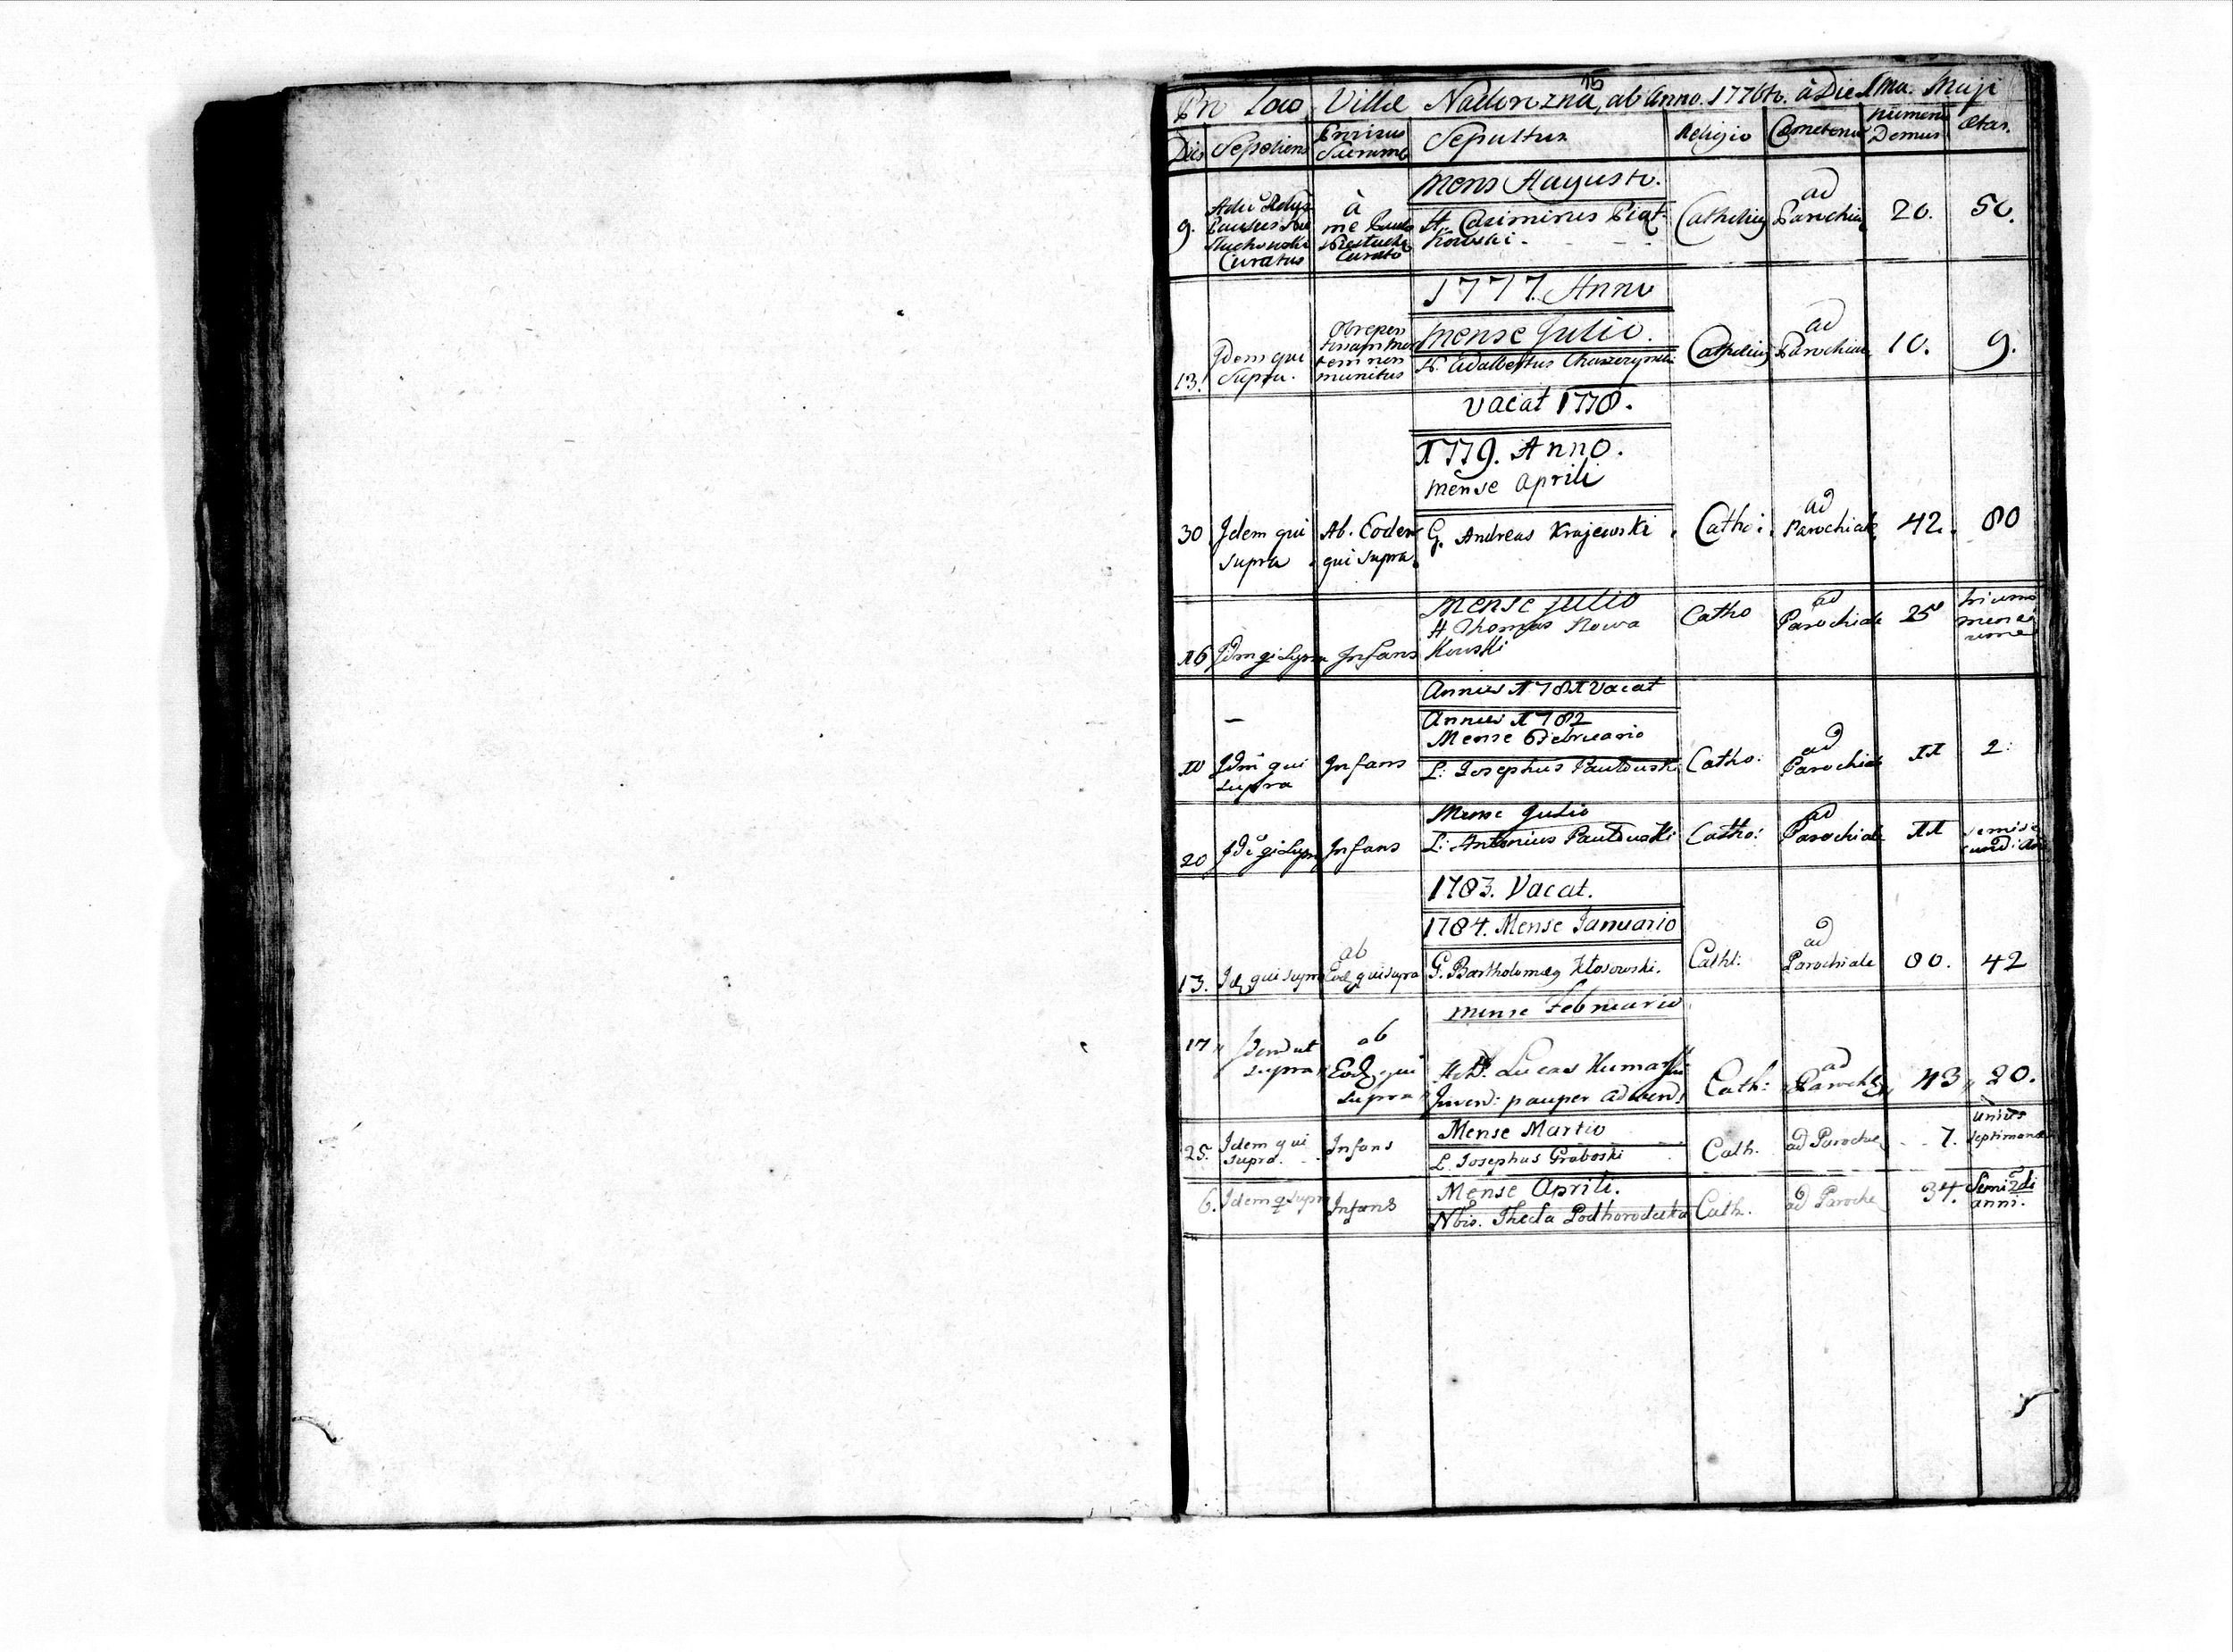 In Loco Villae Nadorozna, ab Anno. 1776to. à Die 1ma. Maji
Dies Sepeliens Provisus Sacramto Sepultus Religio Coemeterium numerus Domus Aetas.
Mens Augusto.
9. Paulus Curatus à me Paulo Curato H. Casimirus Piąt-
kowski - Catholicus ad Parochia 20. 50.
1777. Anno
mense Julio.
13. Idem qui Supra. Ob repen
tinam mor
tem non
munitus H. Adalbertus Catholicus ad Parochiale 10. 9.
Vacat 1778.
1779. Anno.
mense Aprili
30 Idem qui supra Ab. Eodem qui supra. G. Andreas Krajewski. Catho: ad Parochiale 42. 80
mense julio
16 Idm qi supra Infans H Thomas Nowa
kowski Catho ad Parochiale 25 trium
mensi
um
Annus 1781 Vacat
Annus 1782
Mense Februario
10 Idm qui supra Infans L: Josephus Pautowski Catho: ad Parochiale 11 2:
Mense Julio
20 Ide qi Supra Infans L: Antonius Pautowski Catho: ad Parochiale 11 semise
cundi An
1783. Vacat.
1784. Mense Januario
13. Idem qui supra ab Eod qui supra G. Bartholomeus Kłosowski. Cath: ad Parochiale 80. 42
mense Februario
17 Idem ut supra ab Eod qui supra Lucas
pauper Cath: ad Paroch 43 20.
Mense Martio
25. Idem qui supra. Infans L. Josephus Graboski Cath. ad Paroche 7. unius
septimanae
Mense Aprili.
6. Idem q supra Infans Nbis. Thecla Podhorodecka Cath. ad Paroche 34. Semi 2di
anni.